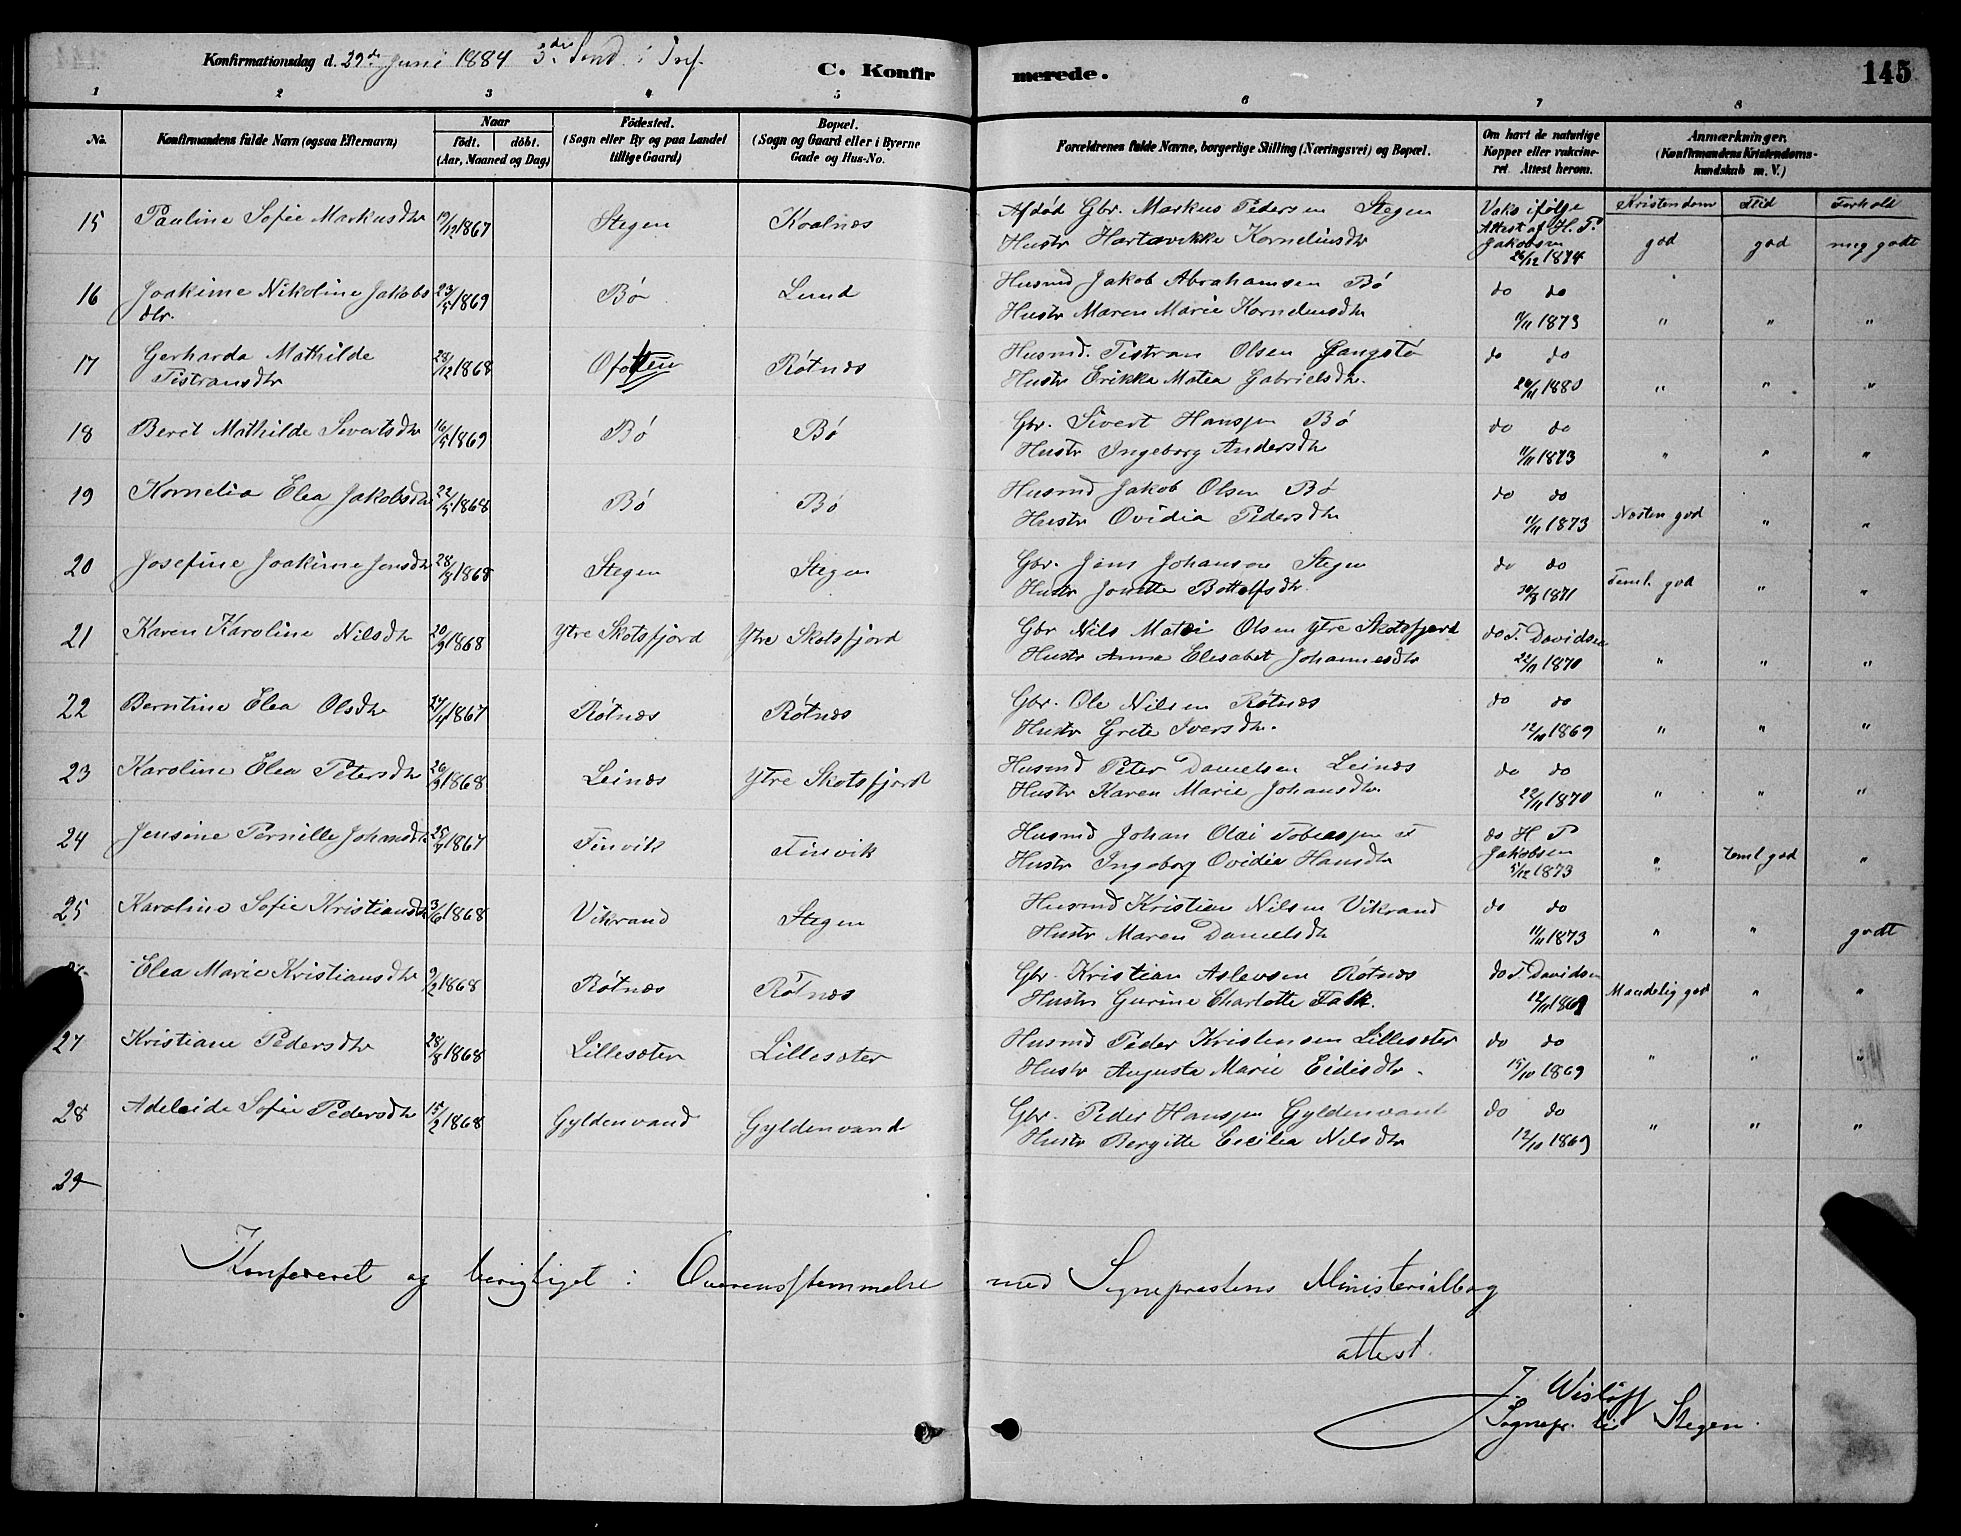 Konfirmationsdag d. 29de Juni 1884 3die Sønd. i Tref.
C. Konfir
1 2 3 4 5
No. Konfirmandens fulde Navn (ogsaa Efternavn) Naar Födested. Bopæl.
födt. döbt. (Sogn eller By og paa Landet (Sogn og Gaard eller i Byerne
(Aar, Maaned og Dag) tillige Gaard) Gade og Hus-No.
15 Pauline Sofie Markusdtr 19/12 1867 Stegen Kralnæs
16 Joakime Nikoline Jakobs 23/5 1869 Bø Lund
dtr.
17 Gerharda Mathilde 28/12 1868 Ofoten Røtnæs
Tistransdtr
18 Beret Mathilde Sivertsdtr 16/5 1869 Bø Bø
19 Kornelia Elea Jakobsdtr 22/5 1868 Bø Bø
20 Josefine Joakime Jensdtr 28/8 1868 Stegen Stegen
21 Karen Karoline Nilsdtr 20/9 1868 Ytre Skotsfjord Ytre Skotsfjord
22 Berntine Elea Olsdtr 27/4 1867 Røtnæs Røtnæs
23 Karoline Elea Petersdtr 26/9 1868 Leinæs Ytre Skotsfjord
24 Jensine Pernille Johansdtr 25/7 1867 Finvik Finvik
25 Karoline Sofie Kristiansdtr 3/6 1868 Vikrand Stegen
Elea Marie Kristiansdtr 9/2 1868 Røtnæs Røtnæs
27 Kristiane Pedersdtr 28/8 1868 Lillesæter Lillesæter
28 Adeleide Sofie Pedersdtr 15/2 1868 Gyldenvand Gyldenvand
29
Konfereret og berigtiget i Overensstemmelse
merede. 145
6 7 8
Forældrenes fulde Navne, borgerlige Stilling (Næringsvei) og Bopæl. Om havt de naturlige Anmærkninger.
Kopper eller vakcine- (Konfirmandens Kristendoms-
ret Attest herom. kundskab m. V.)
Afdød Gbr. Markus Pedersen Stegen Vaks ifølge Kristendom Flid Forhold
Hustr Hartavikke Korneliusdtr Attest af H. P. Jakobsen 26/12 1874 god god meg godt
Husmd Jakob Abrahamsen Bø do do
Hustr Maren Marie Korneliusdtr 11/11 1873 " " "
Husmd. Tistran Olsen Gangstø do do
Hustr Erikka Matea Gabrielsdtr. 20/11 1880 " " "
Gbr. Sivert Hanssen Bø do do
Hustr Ingeborg Andersdtr 11/11 1873 " " "
Husmd Jakob Olsen Bø do do
Hustr Ovidia Pedersdtr 11/11 1873 Næsten god " "
Gbr. Jens Johansen Stegen do do
Hustr Jonette Bottolfsdtr. 30/8 1871 Teml. god " "
Gbr Nils Matei Olsen Ytre Skotsfjord do T. Davidsen
Hustr Anna Elisabet Johannesdtr 22/11 1870 " " "
Gbr. Ole Nilsen Røtnæs do do
Hustr Grete Iversdtr. 12/10 1869 " " "
Husmd Peter Danielsen Leinæs do do
Hustr Karen Marie Johansdtr. 22/11 1870 " " "
Husmd Johan Olai Tobiassen F do H P
Hustr Ingeborg Ovidia Hansdtr Jakobsen 5/12 1873 " Teml god "
Husmd Kristian Nilsen Vikrand do do
Hustr Maren Danielsdtr 11/11 1873 " " godt
Gbr. Kristian Aslevsen Røtnæs do T. Davidsen
Hustr Gurine Charlotte Falk. 12/10 1869 Maadelig god " "
Husmd Peder Kristensen Lillesæter do do
Hustr Augusta Marie Eidisdtr. 15/10 1869 " " "
Gbr. Peder Hanssen Gyldenvand do do
Hustr Bergitte Cecilia Nilsdtr 12/10 1869 " " "
med Sognepræstens Ministerialbog
attest.
J. Wisløff
Sognepr. til Stegen.